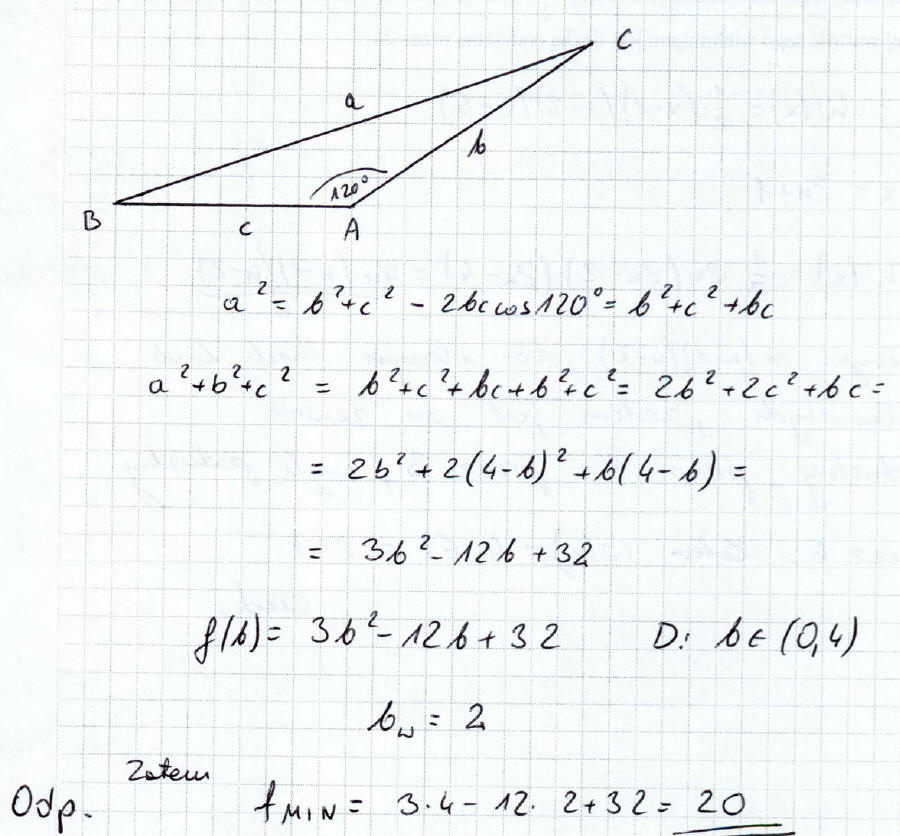 C
a
b
120°
B
c
A
a² = b² + c² - 2bc cos120° = b² + c² + bc
a² + b² + c² = b² + c² + bc + b² + c² = 2b² + 2c² + bc =
= 2b² + 2(4-b)² + b(4-b) =
= 3b² - 12b + 32
f(b) = 3b² - 12b + 32 D: b∈(0,4)
b_w = 2
Zatem
Odp. f_MIN = 3·4 - 12·2 + 32 = 20